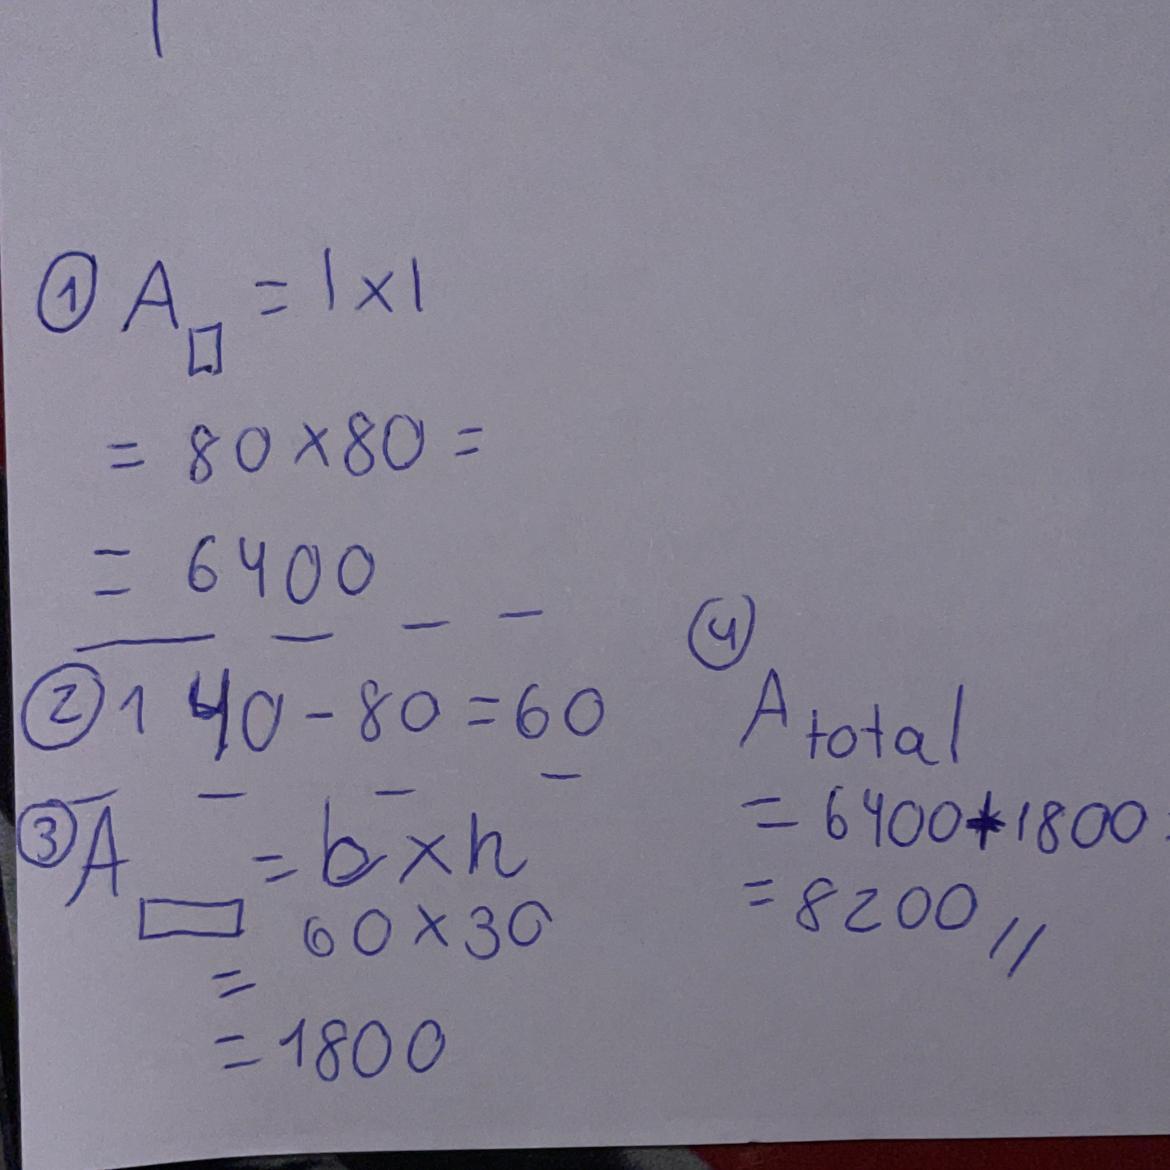 ① A□ = l x l
= 80 x 80 =
= 6400
② 140 - 80 = 60
③ A▭ = b x h
60 x 30
=
= 1800
④
A total
= 6400 + 1800
= 8200 //